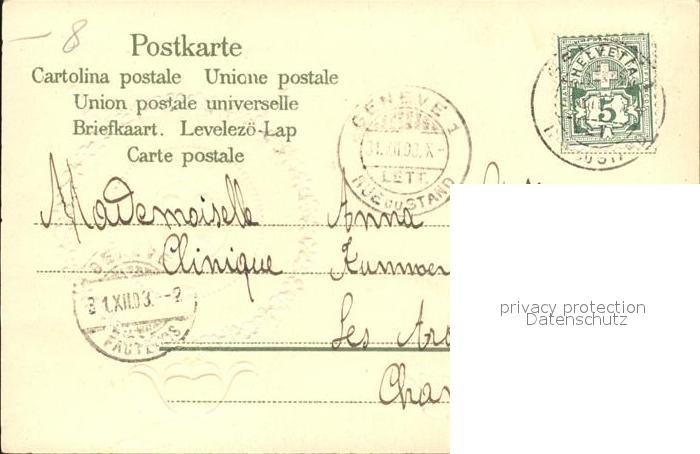 8
Postkarte
Cartolina postale Unione postale
Union postale universelle
Briefkaart. Levelező-Lap
Carte postale
HELVETIA
5
GENÈVE 1
31.XII.03.X-
LETT.
RUE DU STAND
Mademoiselle Anna
Clinique
Les
31.XII.03.--9
FACTEURS
privacy protection
Datenschutz